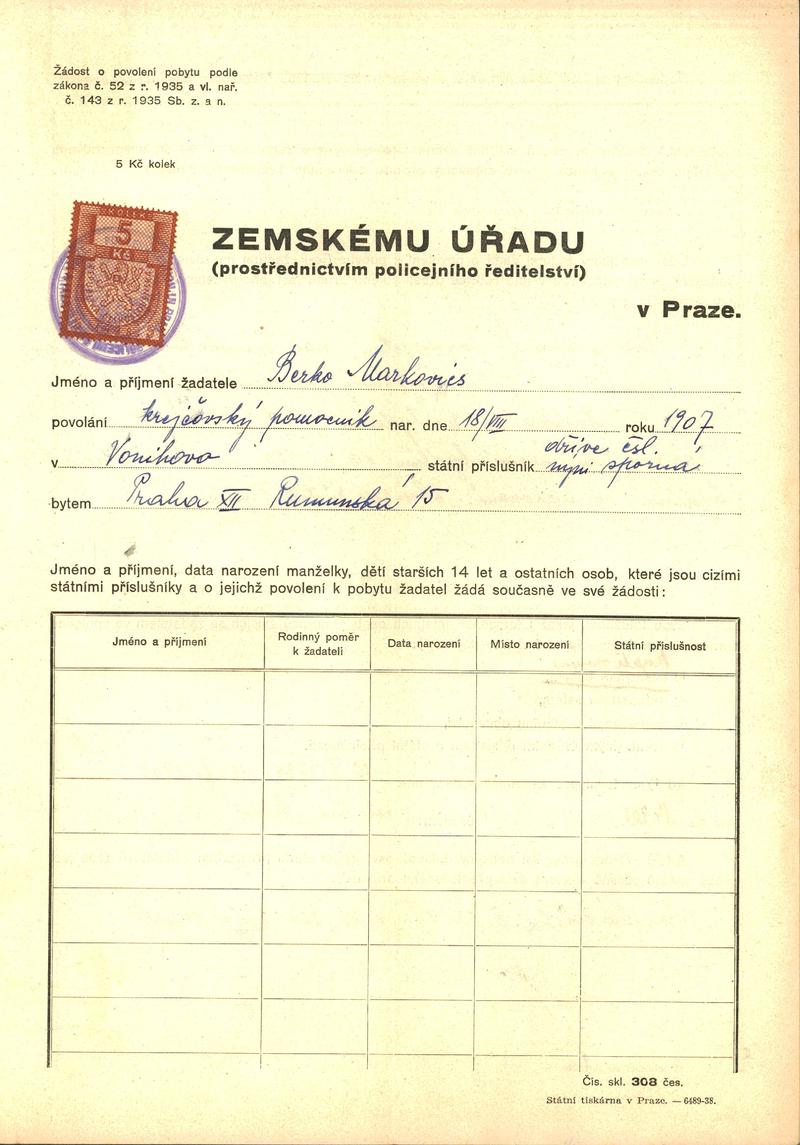 Žádost o povolení pobytu podle
zákona č. 52 z r. 1935 a vl. nař.
č. 143 z r. 1935 Sb. z. a n.
5 Kč kolek
KOLEK
5
Kč
ZEMSKÉMU ÚŘADU
(prostřednictvím policejního ředitelství)
v Praze.
Jméno a příjmení žadatele Berko Markovics
povolání krejčovský pomocník nar. dne 18/VIII roku 1907
dříve čsl.
v Vonihovo státní příslušník nyní sporná
bytem Praha XII Rumunská 15
Jméno a příjmení, data narození manželky, dětí starších 14 let a ostatních osob, které jsou cizími
státními příslušníky a o jejichž povolení k pobytu žadatel žádá současně ve své žádosti:
Jméno a příjmení Rodinný poměr k žadateli Data narození Místo narození Státní příslušnost
Čís. skl. 308 čes.
Státní tiskárna v Praze. — 6489-38.